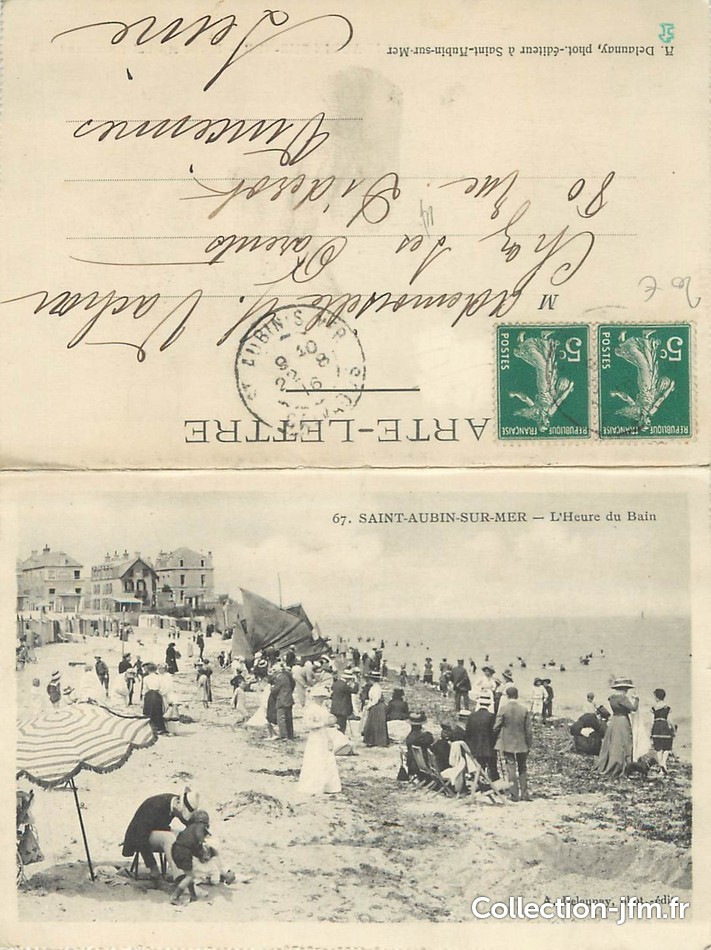 CARTE-LETTRE
Mademoiselle M. Vachon
Chez ses Parents
80 rue Diderot
Vincennes
Seine
5c
POSTES
REPUBLIQUE FRANÇAISE
5c
POSTES
REPUBLIQUE FRANÇAISE
ST AUBIN S MER
CALVADOS
20 €
A. Delaunay, phot.-éditeur à Saint-Aubin-sur-Mer
67. SAINT-AUBIN-SUR-MER — L'Heure du Bain
A. Delaunay, phot.-édit
Collection-jfm.fr